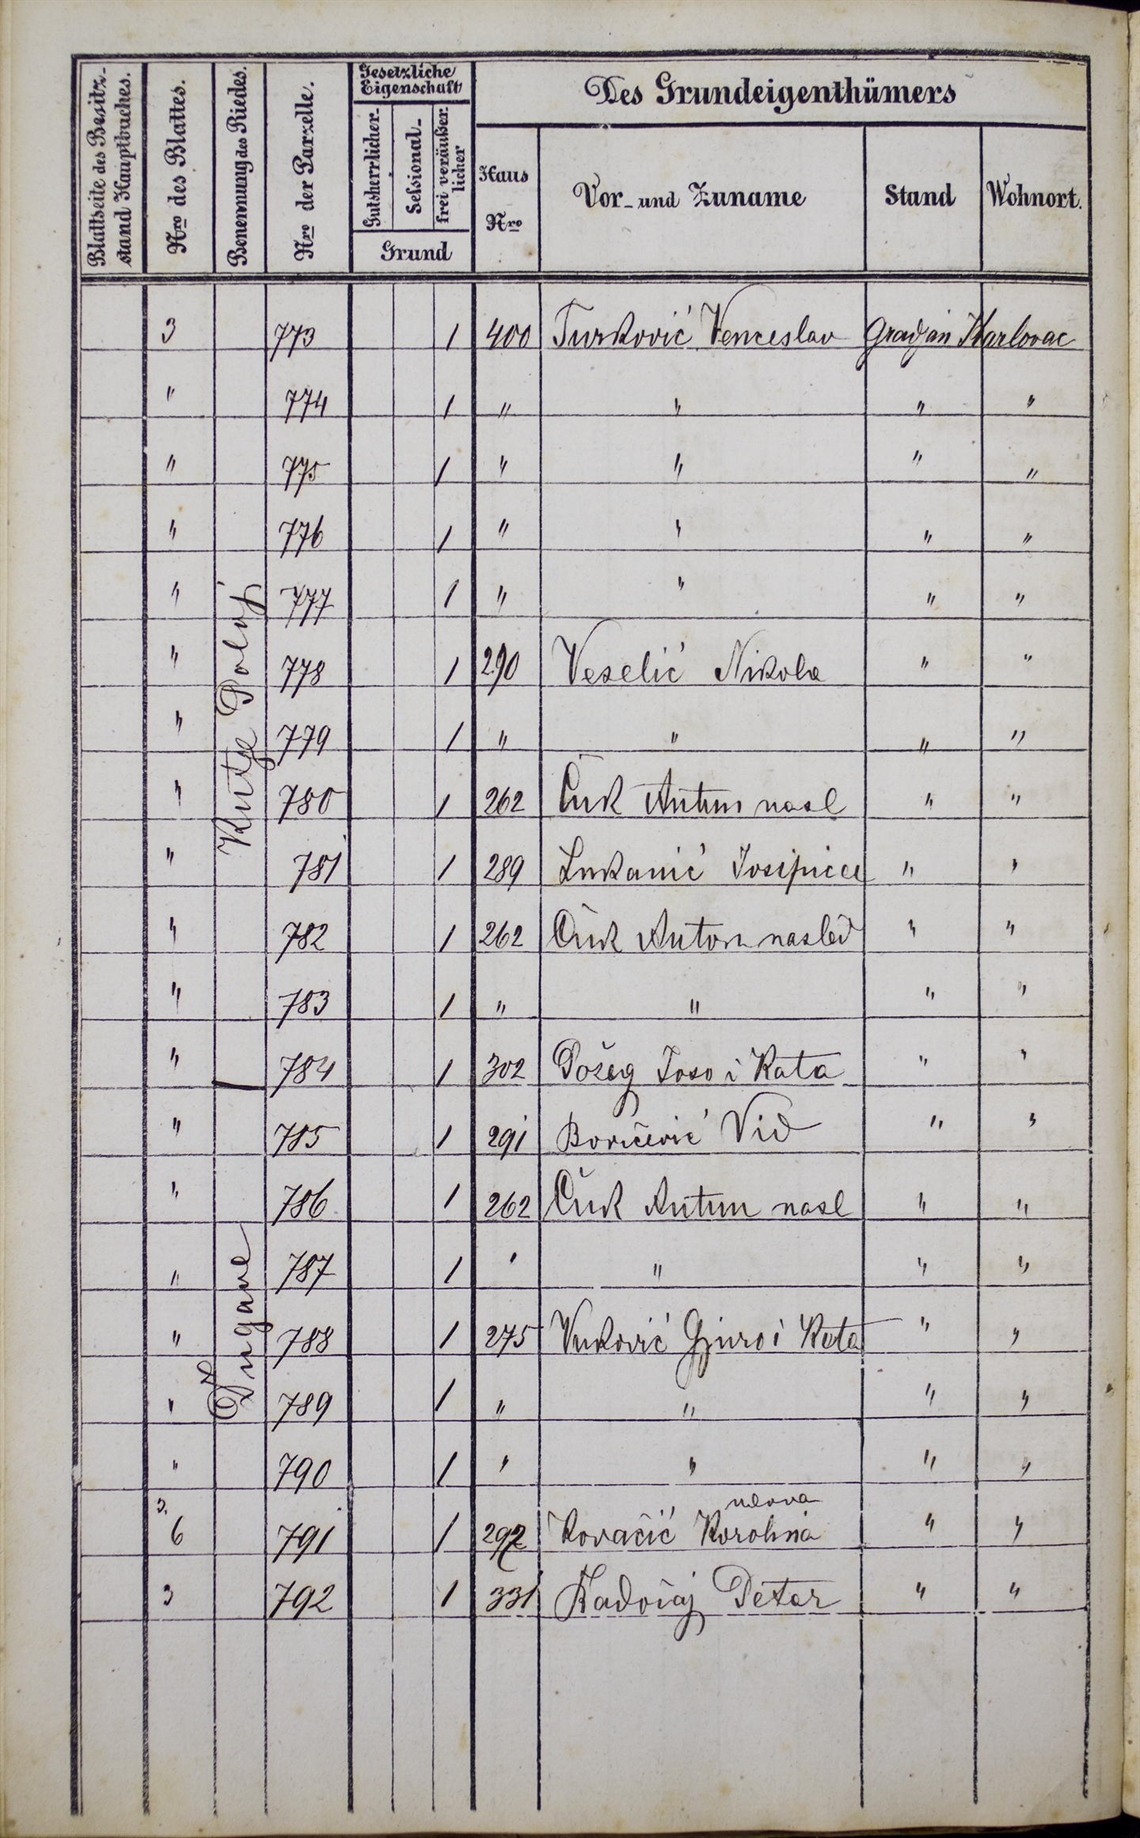 Blattseite des Besitz-
stand Hauptbuches.
Nro des Blattes.
Benennung des Riedes.
Nro der Parzelle.
Gesetzliche
Eigenschaft
Gutsherrlicher.
Sessional-
frei veräußer.
licher
Grund
Des Grundeigenthümers
Haus
Nro
Vor- und Zuname
Stand
Wohnort.
3 773 1 400 Turković Venceslav Gradjan Karlovac
" 774 1 " " " "
" 775 1 " " " "
" 776 1 " " " "
" 777 1 " " " "
" 778 1 290 Veselić Nikola " "
" 779 1 " " " "
" 780 1 262 Čuk Antun nasl " "
" 781 1 289 Lukanić Josipica " "
" 782 1 262 Čuk Anton nasled " "
" 783 1 " " " "
" 784 1 302 Požeg Joso i Kata " "
" 785 1 291 Boričević Vid " "
" 786 1 262 Čuk Antun nasl " "
" 787 1 " " " "
" 788 1 275 Vuković Gjuro i Kata " "
" 789 1 " " " "
" 790 1 " " " "
3.
6 791 1 297 Kovačić Korolina udova " "
3 792 1 331 Radočaj Petar " "
Kutje Poloj